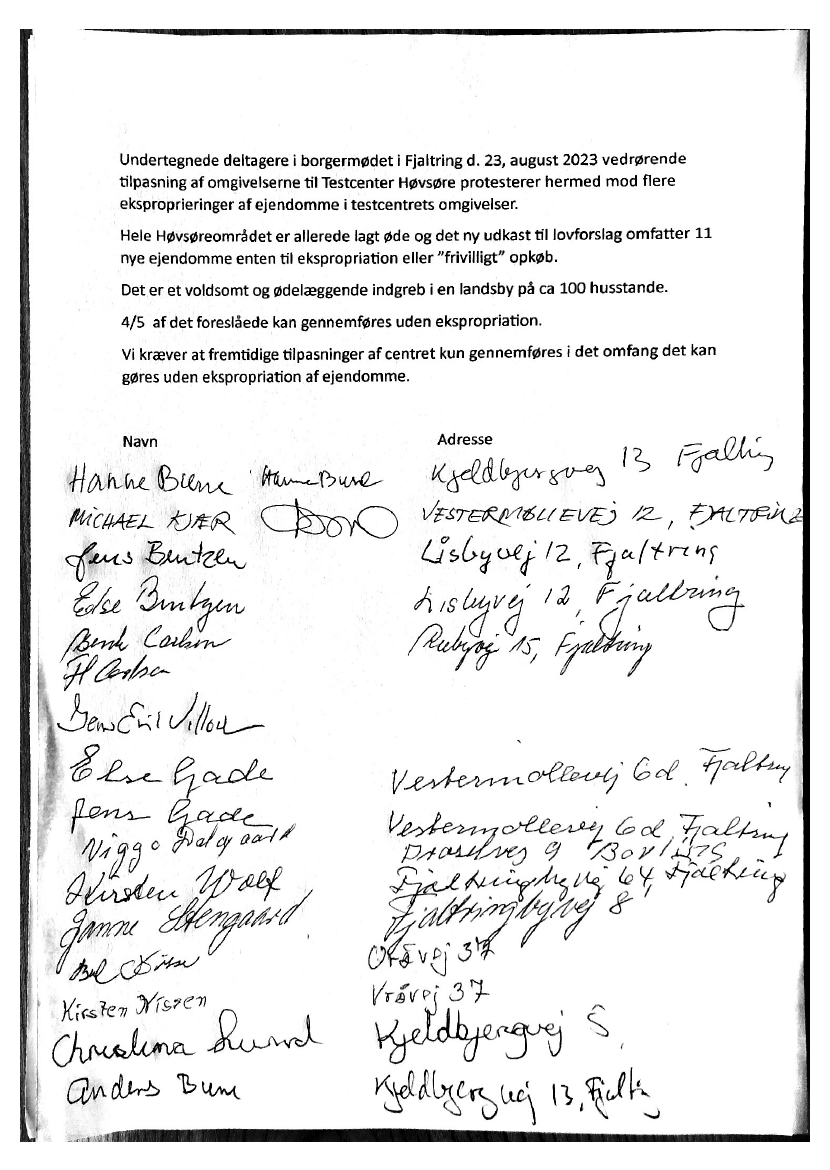 Undertegnede deltagere i borgermødet i Fjaltring d. 23, august 2023 vedrørende
tilpasning af omgivelserne til Testcenter Høvsøre protesterer hermed mod flere
eksproprieringer af ejendomme i testcentrets omgivelser.
Hele Høvsøreområdet er allerede lagt øde og det ny udkast til lovforslag omfatter 11
nye ejendomme enten til ekspropriation eller ”frivilligt” opkøb.
Det er et voldsomt og ødelæggende indgreb i en landsby på ca 100 husstande.
4/5 af det foreslåede kan gennemføres uden ekspropriation.
Vi kræver at fremtidige tilpasninger af centret kun gennemføres i det omfang det kan
gøres uden ekspropriation af ejendomme.
Navn Adresse
Hanne Hanne Kjeldbjergvej 13
MICHAEL KJÆR VESTERMØLLEVEJ 12, FJALTRING
Jens Bentzen Lisbyvej 12, Fjaltring
Else Bentzen Lisbyvej 12, Fjaltring
Carlsen 15, Fjaltring
Carlsen
Else Gade Vestermøllevej 6d. Fjaltring
Jens Gade Vestermøllevej 6d, Fjaltring
Viggo Dalgaard 9
Kirsten Wolf Fjaltringbyvej 64, Fjaltring
Janne Stengaard Fjaltringbyvej 8
37
Kirsten Nissen Vråvej 37
Christina Lund Kjeldbjergvej 5
Anders Kjeldbjergvej 13,